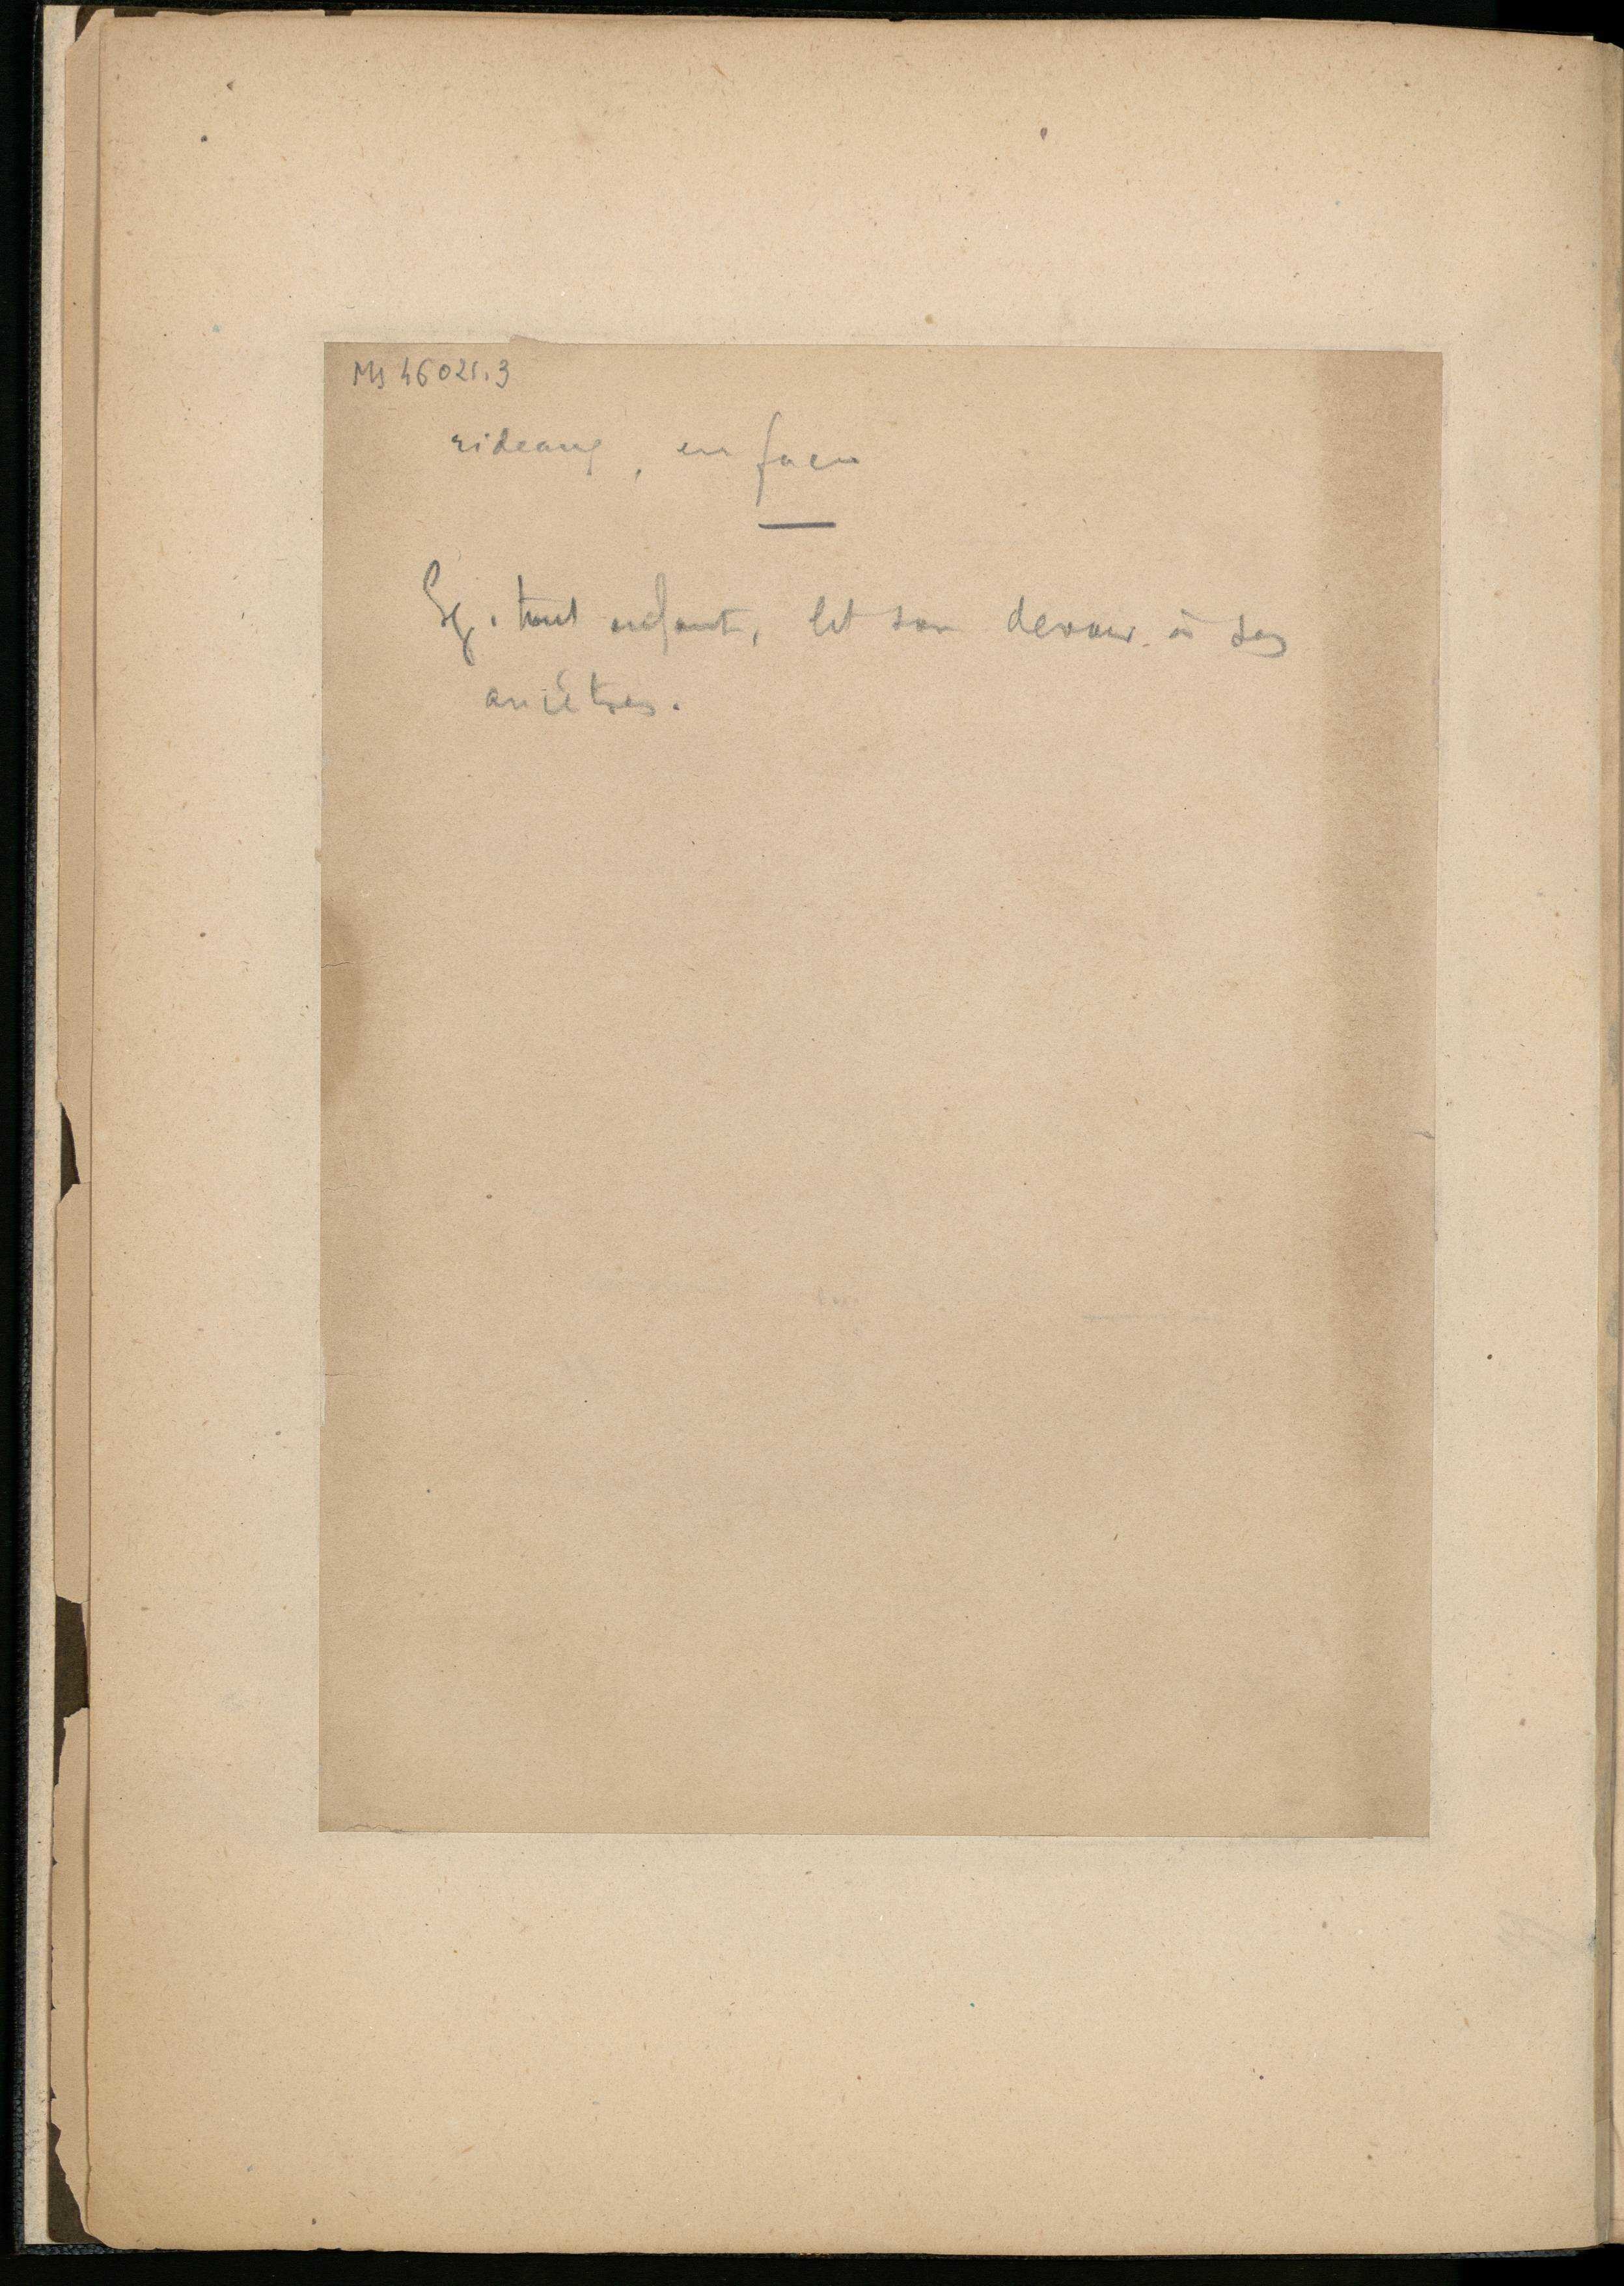 Ms 46021.3
rideaux, en face
Ig. tout enfant, lit son devoir à ses
ancêtres.